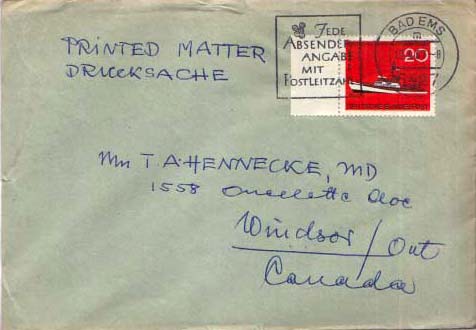 PRINTED MATTER
DRUCKSACHE
JEDE
ABSENDER-
ANGABE
MIT
POSTLEITZAHL
BAD EMS
20
DEUTSCHE BUNDESPOST
T A. HENNECKE, MD
1558 Ouellette
Windsor / Ont
Canada